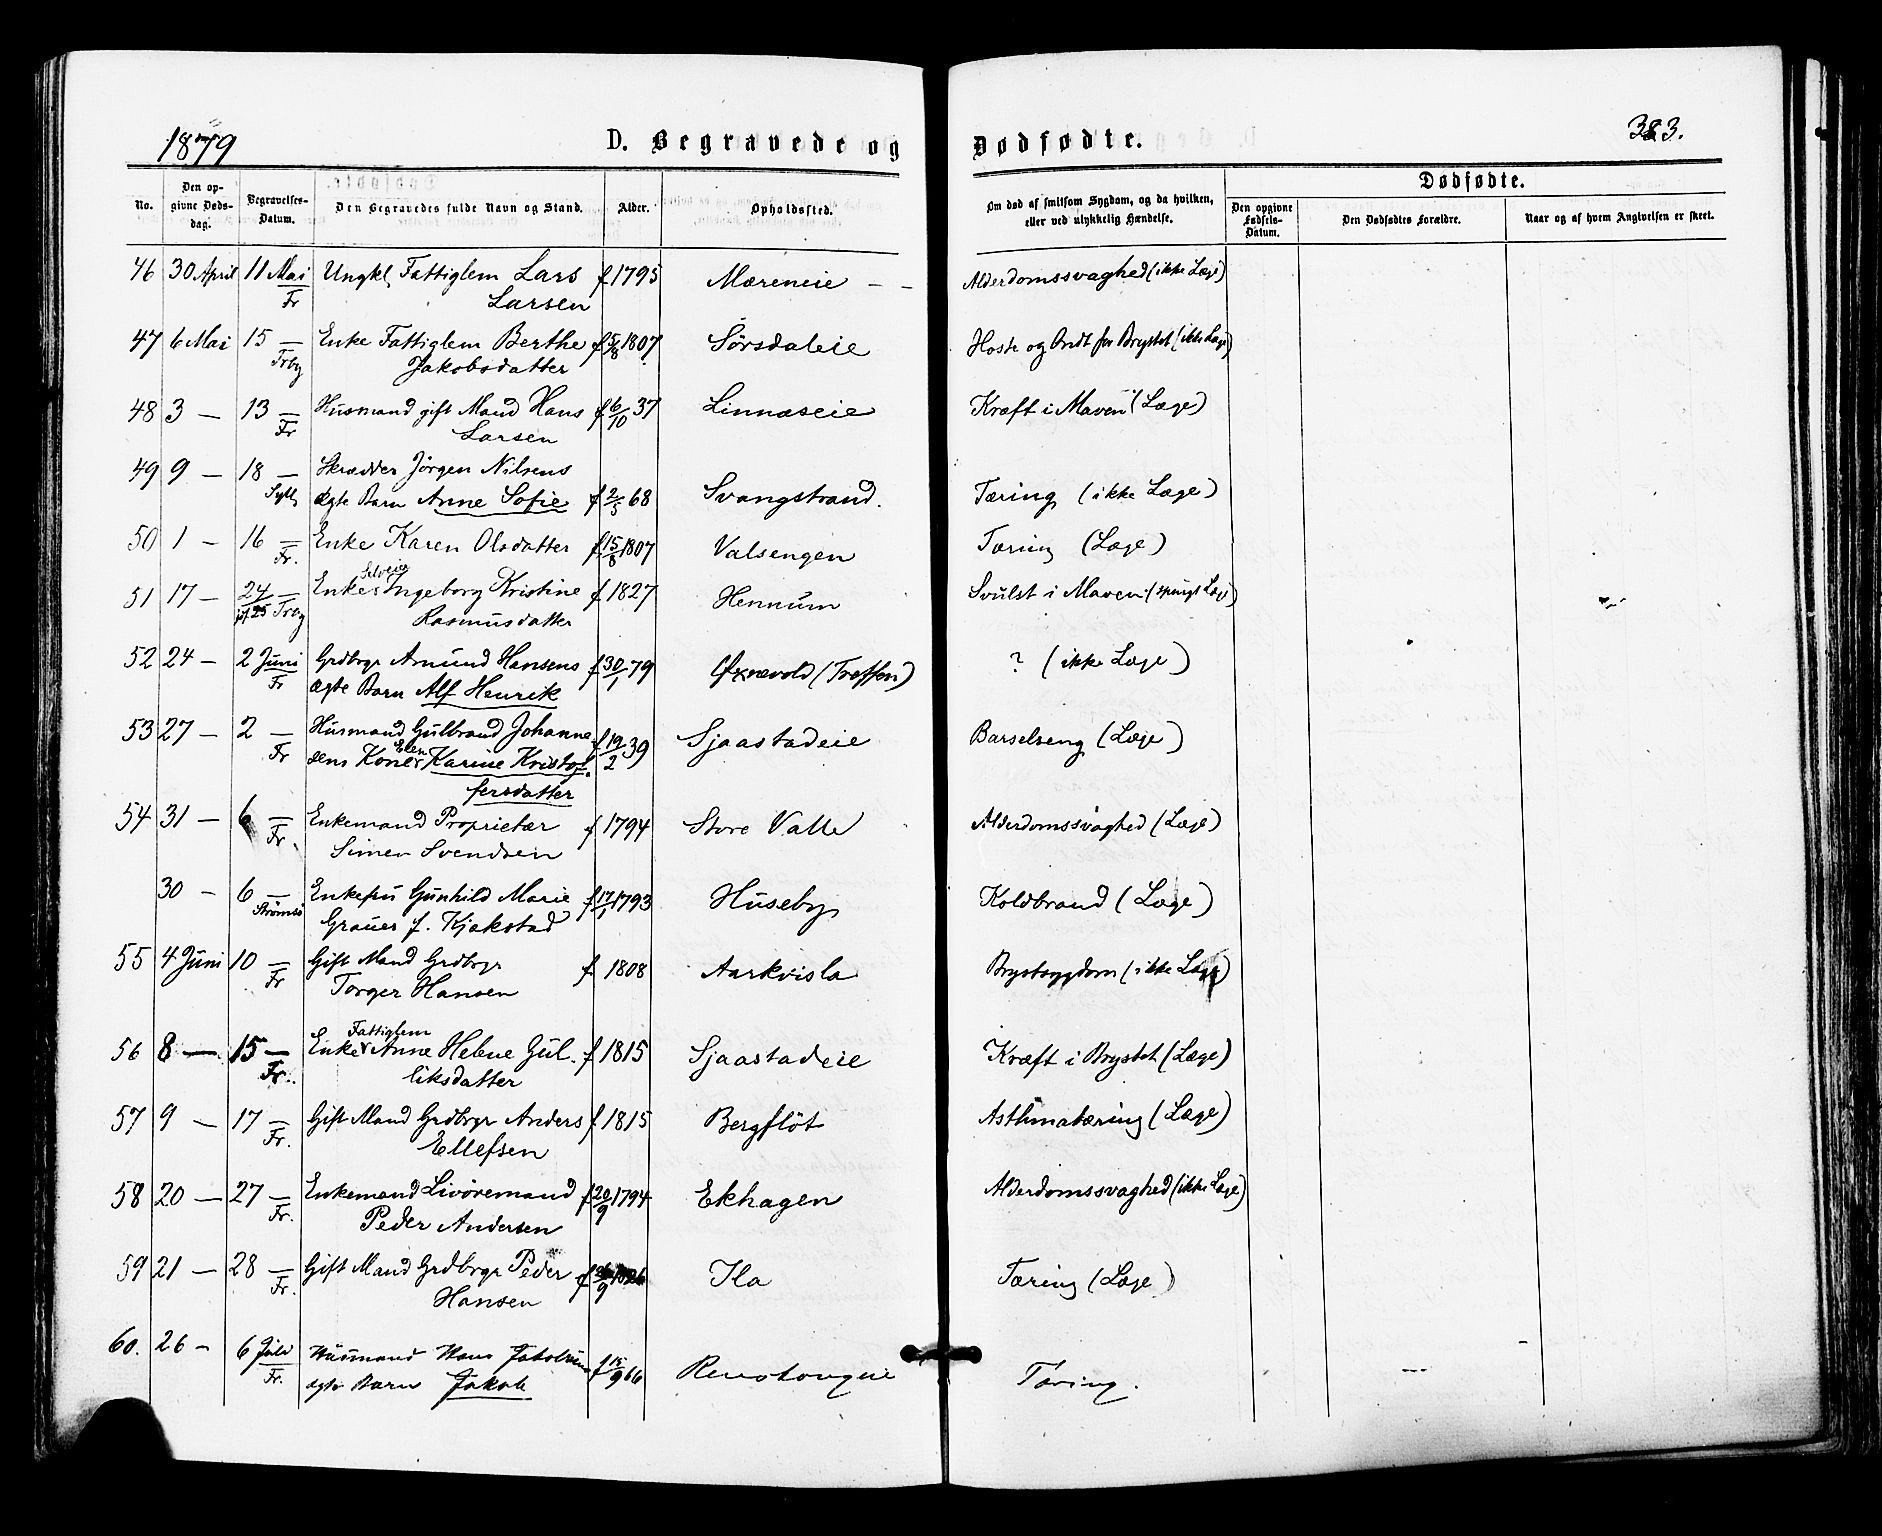 1879
D. Begravede og Dødfødte.
383.
No.
Den opgivne Dødsdag.
Begravelses-Datum.
Den Begravedes fulde Navn og Stand.
Alder.
Opholdssted.
Om død af smitsom Sygdom, og da hvilken, eller ved ulykkelig Hændelse.
Dødfødte.
Den opgivne Fødsels-Datum.
Den Dødfødtes Forældre.
Naar og af hvem Angivelsen er skeet.
46 30 April 11 Mai Ungkl Fattiglem Lars f 1795 Mæreneie - - Alderdomssvaghed (ikke Læge)
Fr Larsen
47 6 Mai 15 — Enke Fattiglem Berthe f 5/8 1807 Sørsdaleie Hoste og Ondt for Brystet (ikke Læge)
Frby Jakobsdatter
48 3 — 13 — Husmand gift Mand Hans f 6/10 37 Linnæseie Kræft i Maven (Læge)
Fr Larsen
49 9 — 18 — Skrædder Jørgen Nilsens
Syll ægte Barn Anne Sofie f 2/5 68 Svangstrand. Tæring (ikke Læge)
50 1 — 16 — Enke Karen Olsdatter f 15/8 1807 Valsengen Tæring (Læge)
Fr.
Selveie
51 17 — 24 — Enke Ingeborg Kristine f 1827 Hennum Svulst i Maven (spurgt Læge)
25 Frby Rasmusdatter
52 24 — 2 Juni Grdbrgr Amund Hansens f 30/1 79 Øxnevold (Treffen) ? (ikke Læge)
Fr ægte Barn Alf Henrik
53 27 — 2 — Husmand Gulbrand Johanne- f 19/2 39 Sjaastadeie Barselseng (Læge)
Fr sens Kone Elen Karine Kristof-
fersdatter
54 31 — 6 — Enkemand Proprietær f 1794 Store Valle Alderdomssvaghed (Læge)
Fr. Simen Svendsen
30 — 6 — Enkefru Gunhild Marie f 17/1 1793 Huseby Koldbrand (Læge)
Strømsø Grauer f. Kjekstad
55 4 Juni 10 — Gift Mand Grdbrgr f 1808 Aarkvisla Brystsygdom (ikke Læge)
Fr Torger Hansen
Fattiglem
56 8 — 15 — Enke Anne Helene Gul- f 1815 Sjaastadeie Kræft i Brystet (Læge)
Fr. liksdatter
57 9 — 17 — Gift Mand Grdbrgr Anders f 1815 Bergflöt Asthmatæring (Læge)
Fr. Ellefsen
58 20 — 27 — Enkemand Livøremand f 20/9 1794 Ekhagen Alderdomssvaghed (ikke Læge)
Fr. Peder Andersen
59 21 — 28 — Gift Mand Grdbrgr Peder f 26/9 Ila Tæring (Læge)
Fr. Hansen
60. 26 - 6 Juli Husmand Hans Jakobsens f 15/9 66 Renskougeie Tæring.
Fr. ægte Barn Jakob